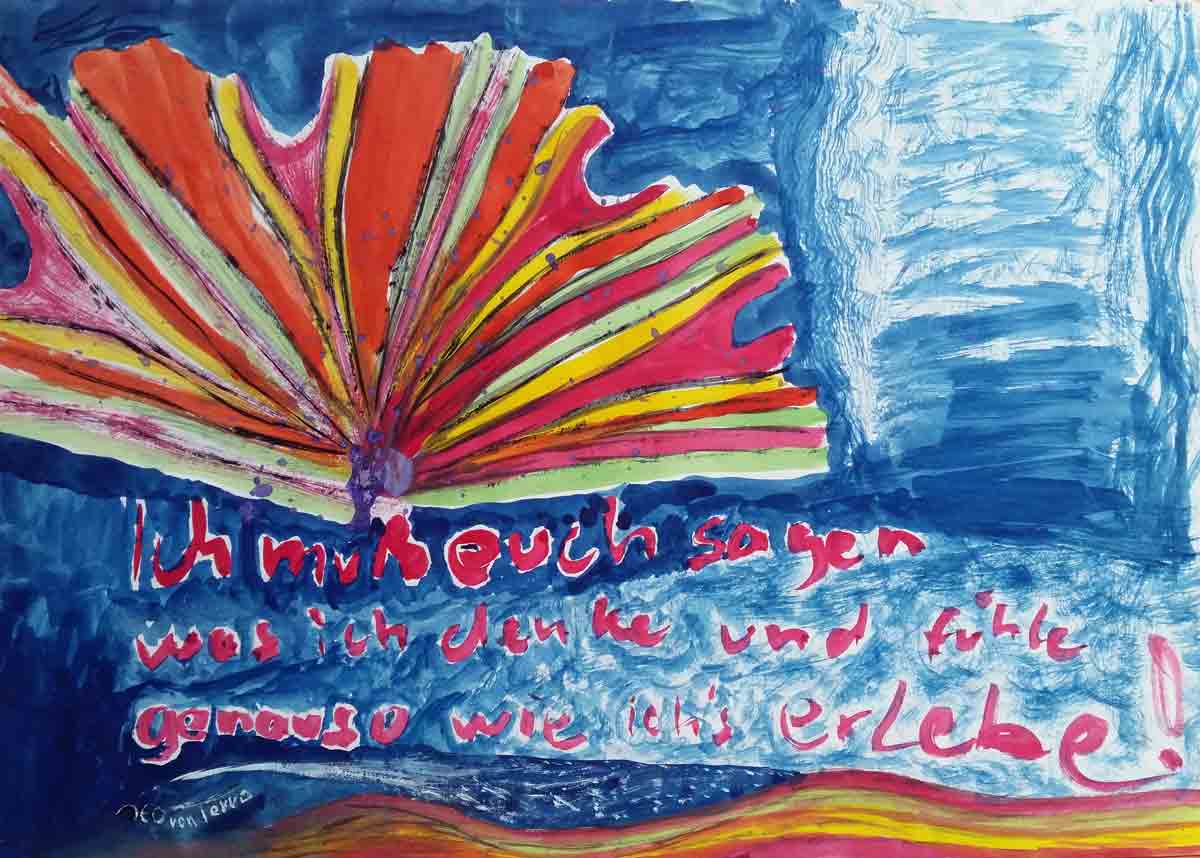 Ich muß euch sagen
was ich denke und fühle
genauso wie ich's erlebe!
von Terra